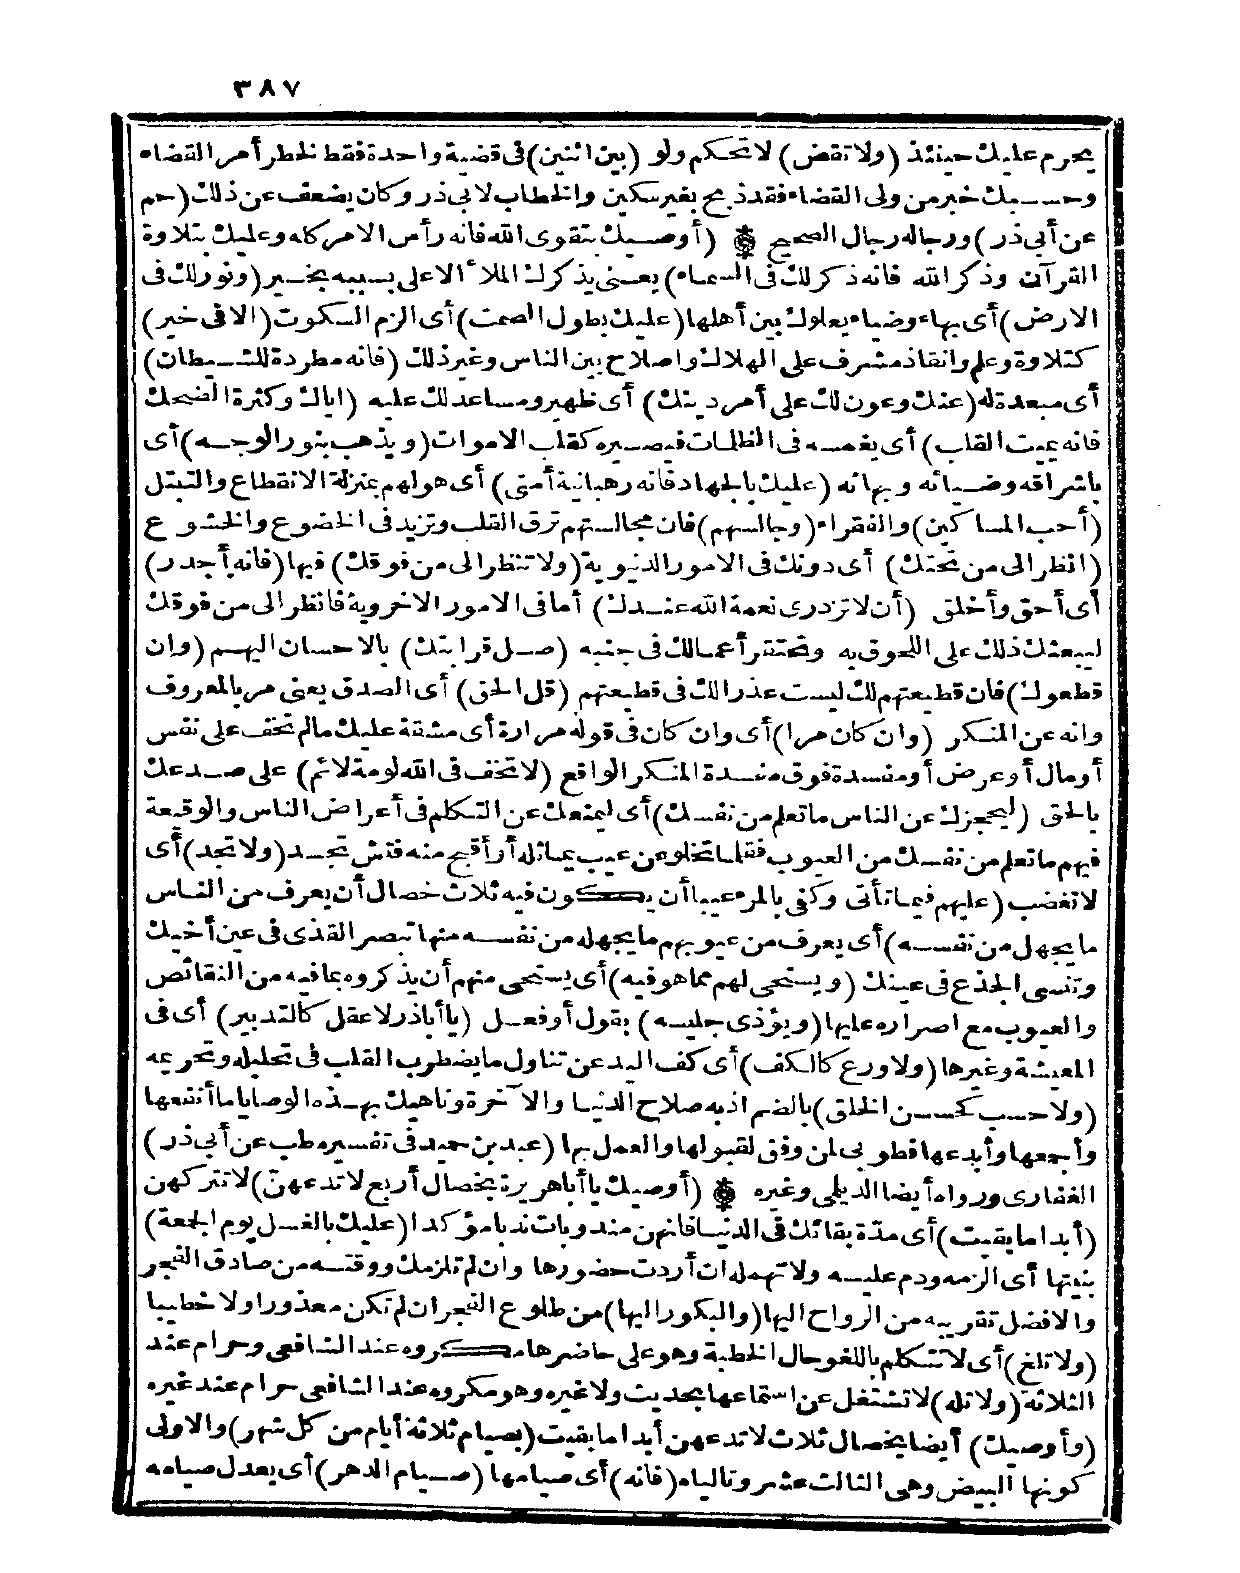 ٣٨٧
يحرم عليك حينئذ (ولا تقض) لا تحكم ولو (بين اثنين) فى قضية واحدة فقط لخطر أمر القضاء
وحسبك خبر من ولى القضاء فقد ذبح بغير سكين والخطاب لابى ذر وكان يضعف عن ذلك (حم
عن أبى ذر) ورجاله رجال الصحيح ۞ (أوصيك بتقوى الله فانه رأس الامر كله وعليك بتلاوة
القرآن وذكر الله فانه ذكر لك فى السماء) يعنى يذكرك الملأ الاعلى بسببه بخير (ونور لك فى
الارض) أى بهاء وضياء يعلوك بين أهلها (عليك بطول الصمت) أى الزم السكوت (الا فى خير)
كتلاوة وعلم وانقاذ مشرف على الهلاك واصلاح بين الناس وغير ذلك (فانه مطردة للشيطان)
أى مبعدة له (عنك وعون لك على أمر دينك) أى ظهير ومساعد لك عليه (اياك وكثرة الضحك
فانه يميت القلب) أى يغمسه فى الظلمات فيصيره كقلب الاموات (ويذهب بنور الوجه) أى
باشراقه وضيائه وبهائه (عليك بالجهاد فانه رهبانية أمتى) أى هو لهم بمنزلة الانقطاع والتبتل
(أحب المساكين) والفقراء (وجالسهم) فان مجالستهم ترق القلب وتزيد فى الخضوع والخشوع
(انظر الى من تحتك) أى دونك فى الامور الدنيوية (ولا تنظر الى من فوقك) فيها (فانه أجدر)
أى أحق وأخلق (أن لا تزدرى نعمة الله عندك) أما فى الامور الاخروية فانظر الى من فوقك
ليبعثك ذلك على اللحوق به وتحتقر أعمالك فى جنبه (صل قرابتك) بالاحسان اليهم (وان
قطعوك) فان قطيعتهم لك ليست عذرا لك فى قطيعتهم (قل الحق) أى الصدق يعنى مر بالمعروف
وانه عن المنكر (وان كان مرا) أى وان كان فى قوله مرارة أى مشقة عليك ما لم تخف على نفس
أو مال أو عرض أو مفسدة فوق مفسدة المنكر الواقع (لا تخف فى الله لومة لائم) على صدعك
بالحق (ليحجزك عن الناس ما تعلم من نفسك) أى ليمنعك عن التكلم فى أعراض الناس والوقيعة
فيهم ما تعلم من نفسك من العيوب فقلما تخلو عن عيب يماثله أو أقبح منه فتش تجد (ولا تجد) أى
لا تغضب (عليهم فيما تأتى وكفى بالمرء عيبا أن يكون فيه ثلاث خصال أن يعرف من الناس
ما يجهل من نفسه) أى يعرف من عيوبهم ما يجهله من نفسه منها تبصر القذى فى عين أخيك
وتنسى الجذع فى عينك (ويستحى لهم مما هو فيه) أى يستحى منهم أن يذكروه بما فيه من النقائص
والعيوب مع اصراره عليها (ويؤذى جليسه) بقول أو فعل (يا أباذر لا عقل كالتدبير) أى فى
المعيشة وغيرها (ولا ورع كالكف) أى كف اليد عن تناول ما يضطرب القلب فى تحليله وتحريمه
(ولا حسب كحسن الخلق) بالضم اذ به صلاح الدنيا والآخرة وناهيك بهذه الوصايا ما أنفعها
وأجمعها وأبدعها فطوبى لمن وفق لقبولها والعمل بها (عبد بن حميد فى تفسيره طب عن أبى ذر)
الغفارى ورواه أيضا الديلمى وغيره ۞ (أوصيك يا أبا هريرة بخصال أربع لا تدعهن) لا تتركهن
(أبدا ما بقيت) أى مدّة بقائك فى الدنيا فانهن مندوبات ندبا مؤكدا (عليك بالغسل يوم الجمعة)
بنيتها أى الزمه ودم عليه ولا تهمله ان أردت حضورها وان لم تلزمك ووقته من صادق الفجر
والافضل تقريبه من الرواح اليها (والبكور اليها) من طلوع الفجر ان لم تكن معذورا ولا خطيبا
(ولا تلغ) أى لا تتكلم باللغو حال الخطبة وهو على حاضرها مكروه عند الشافعى وحرام عند
الثلاثة (ولا تله) لا تشتغل عن استماعها بحديث ولا غيره وهو مكروه عند الشافعى حرام عند غيره
(وأوصيك) أيضا بخصال ثلاث لا تدعهن أبدا ما بقيت (بصيام ثلاثة أيام من كل شهر) والاولى
كونها البيض وهى الثالث عشر وتالياه (فانه) أى صيامها (صيام الدهر) أى يعدل صيامه